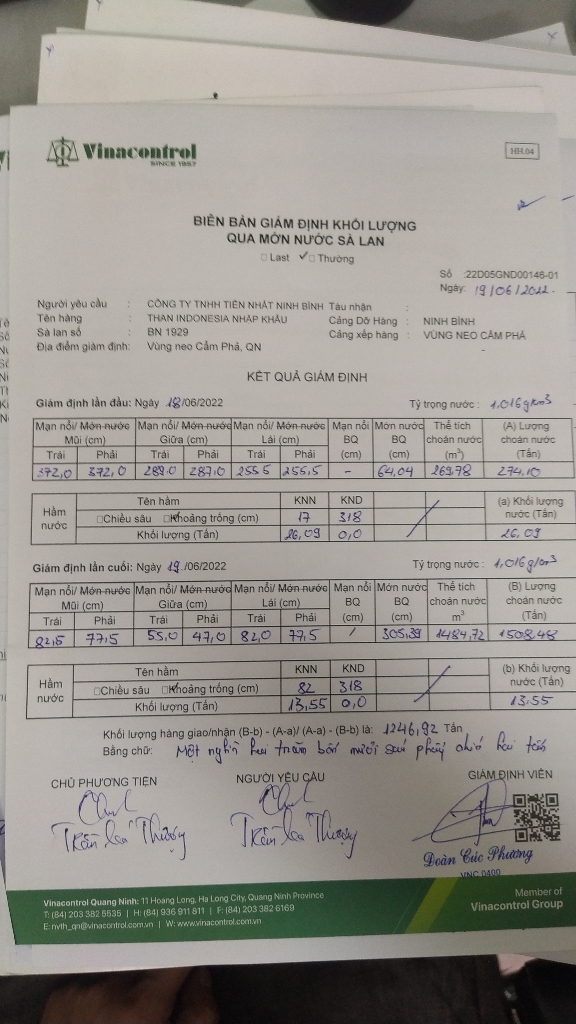 Vinacontrol
SINCE 1957
HH.04
BIÊN BẢN GIÁM ĐỊNH KHỐI LƯỢNG
QUA MỚN NƯỚC SÀ LAN
□ Last ✓□ Thường
Số :22D05GND00146-01
Ngày: 19/06/2022
Người yêu cầu : CÔNG TY TNHH TIẾN NHẤT NINH BÌNH Tàu nhận :
Tên hàng : THAN INDONESIA NHẬP KHẨU Cảng Dỡ Hàng : NINH BÌNH
Sà lan số : BN 1929 Cảng xếp hàng : VÙNG NEO CẨM PHẢ
Địa điểm giám định: Vùng neo Cẩm Phả, QN
KẾT QUẢ GIÁM ĐỊNH
Giám định lần đầu: Ngày 18/06/2022 Tỷ trọng nước : 1,016g/cm3
Mạn nổi/ Mớn nước Mũi (cm) Mạn nổi/ Mớn nước Giữa (cm) Mạn nổi/ Mớn nước Lái (cm) Mạn nổi BQ (cm) Mớn nước BQ (cm) Thể tích choán nước (m3) (A) Lượng choán nước (Tấn)
Trái Phải Trái Phải Trái Phải
372,0 372,0 289.0 287,0 255.5 255,5 - 64,04 269.78 274,10
Hầm nước Tên hầm KNN KND (a) Khối lượng nước (Tấn)
□Chiều sâu □Khoảng trống (cm) 17 318
Khối lượng (Tấn) 26,09 0,0 26,09
Giám định lần cuối: Ngày 19/06/2022 Tỷ trọng nước : 1,016g/cm3
Mạn nổi/ Mớn nước Mũi (cm) Mạn nổi/ Mớn nước Giữa (cm) Mạn nổi/ Mớn nước Lái (cm) Mạn nổi BQ (cm) Mớn nước BQ (cm) Thể tích choán nước m3 (B) Lượng choán nước (Tấn)
Trái Phải Trái Phải Trái Phải
82,5 77,5 55,0 47,0 82,0 77,5 / 305,39 1484,72 1508,48
Hầm nước Tên hầm KNN KND (b) Khối lượng nước (Tấn)
□Chiều sâu □Khoảng trống (cm) 82 318
Khối lượng (Tấn) 13,55 0,0 13.55
Khối lượng hàng giao/nhận (B-b) - (A-a)/ (A-a) - (B-b) là: 1246,92 Tấn
Bằng chữ: Một nghìn hai trăm bốn mươi sáu phẩy chín hai tấn
CHỦ PHƯƠNG TIỆN NGƯỜI YÊU CẦU GIÁM ĐỊNH VIÊN
Đoàn Cúc Phương
VNC 0400
Vinacontrol Quang Ninh: 11 Hoang Long, Ha Long City, Quang Ninh Province
T: (84) 203 382 5535 | H: (84) 936 911 811 | F: (84) 203 382 6169
E: nvth_qn@vinacontrol.com.vn | W: www.vinacontrol.com.vn
Member of
Vinacontrol Group